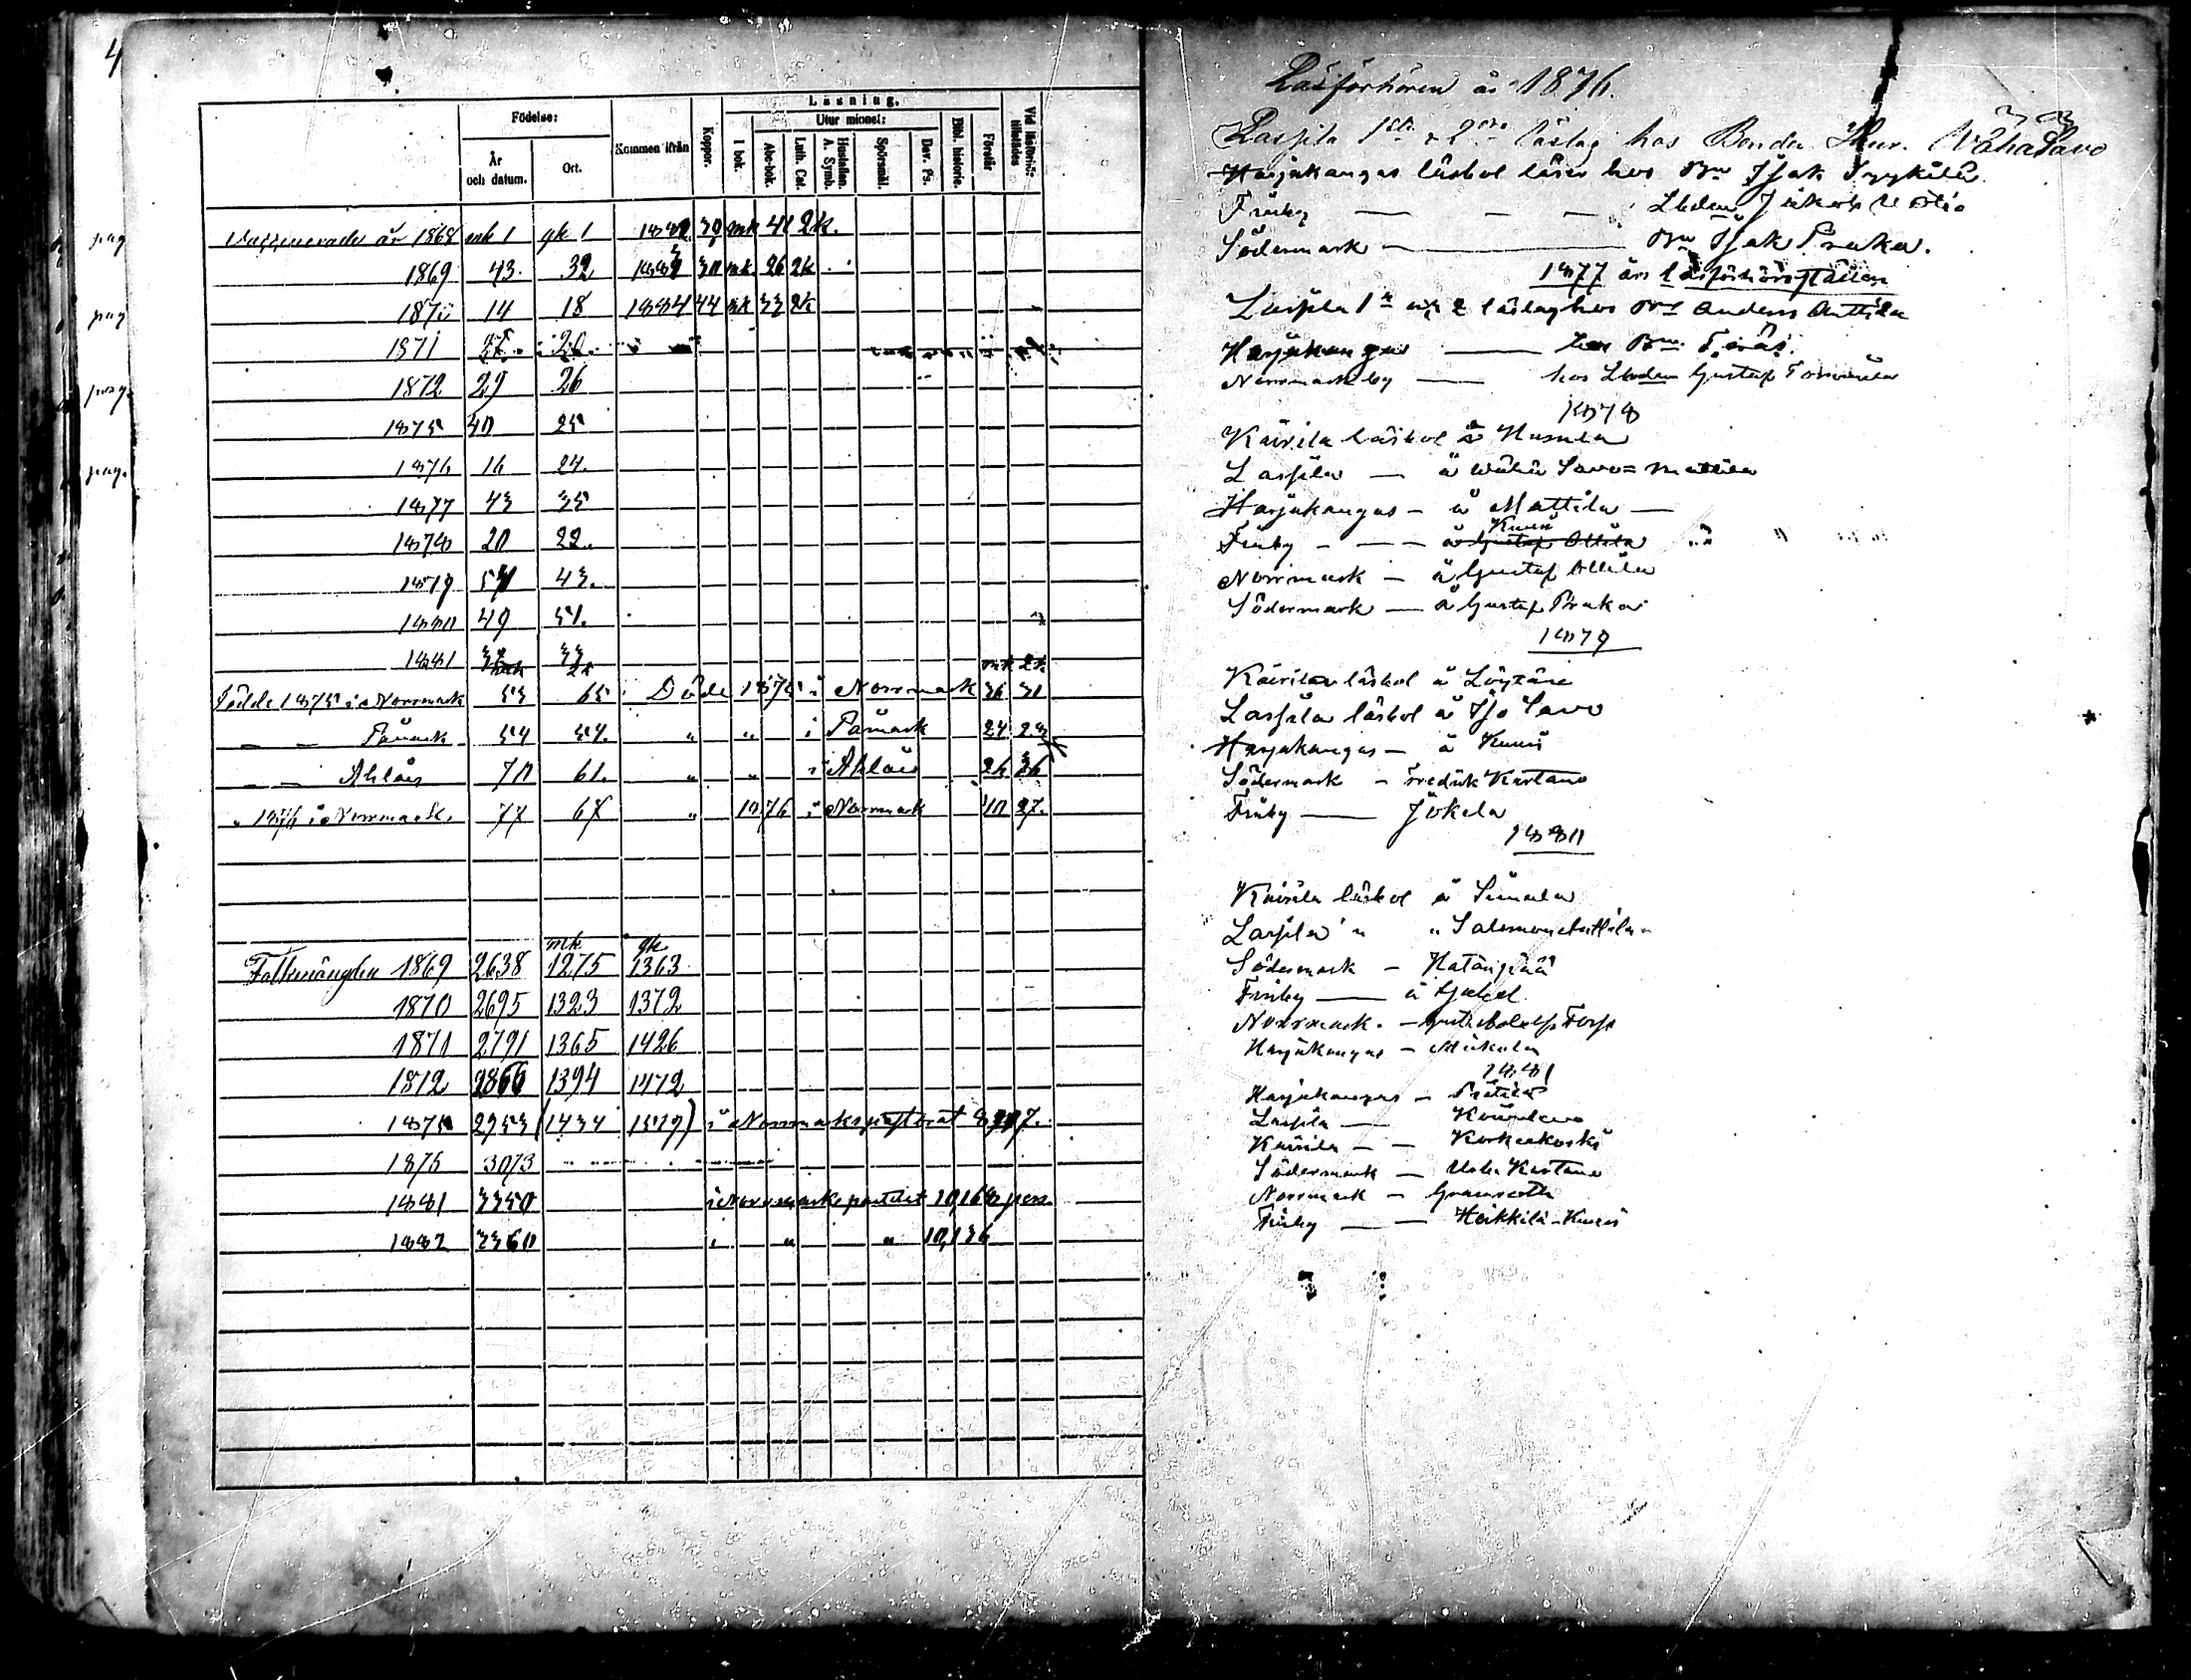 4
pag
pag
pag.
pag.
Födelse:
År och datum.
Ort.
Kommen ifrån
Koppor.
Läsning.
I bok.
Utur minnet:
Abc-bok.
Luth. Cat.
Hustaflan. A. Symb.
Spörsmål.
Dav. Ps.
Bibl. historie.
Förstår
Vid läsförhör tillstädes
Vaccinerade år 1868 mk 1 qk 1 1882 39 mk 41 2k.
1869 43. 32 1883 30 mk. 26 2k
1870 14 18 1884 44 mk 33 2k
1871 28. 20.
1872 29 26
1875 40 25
1876 16 24.
1877 43 35
1878 20 22.
1879 43.
1880 49 51.
1881 33
mk 2k
Födde 1875 i Norrmark 53 65 Döde 1875 i Norrmark 36 31
— — Påmark 54 „ „ i Påmark 24
— — Ahlåis 70 61. „ „ i Ahlåis 26 36
„ 1876 i Norrmark. 77 67 „ 1876 i Norrmark 40 27.
mk qk
Folkmängden 1869 2638 1275 1363
1870 2695 1323 1372
1871 2791 1365 1426
1872 2866 1394 1472
2953 (1434 1519) i Norrmarks pastorat
1875 3073
1881 3350 i Norrmarks pastorat 10,168 pers.
1882 3360 i „ „ 10,136
Läsförhören år 1876.
Lassila 1sta & 2dra läslag hos Bonden Wähä Savo
Harjakangas läsbol läser hos Bn Isak Tyykilä
Finby — — — Jakob Ollila
Södermark — Bn Isak Pruka.
1877 års läsförhörsställen
Lassila 1a och 2 läslag hos Bn Anders Anttila
Harjakangas — hos Bn
Norrmark by — hos Gustaf Tommila
1878
Kairila läsbol å Husula
Lassila — å Wähä Savo = Mattila
Harjakangas — å Mattila —
Knuus
Finby — — — å Gustaf Ollila
Norrmark — å Gustaf Ollila
Södermark — å Gustaf Pruka
1879
Kairila läsbol å Löytäne
Lassila läsbol å Iso Savo
Harjakangas — å Knuus
Södermark — Fredrik Kartano
Finby — Jokela
1880
Kairila läsbol å Simula
Lassila „ „ Salomon Anttila
Södermark — Hatanpää
Finby — å
Norrmark. — Torp
Harjakangas — Mikola
1881
Harjakangas —
Lassila —
Kairila — — Korkeakoski
Södermark — Kartano
Norrmark — Granroth
Finby — — Heikkilä-Knuus